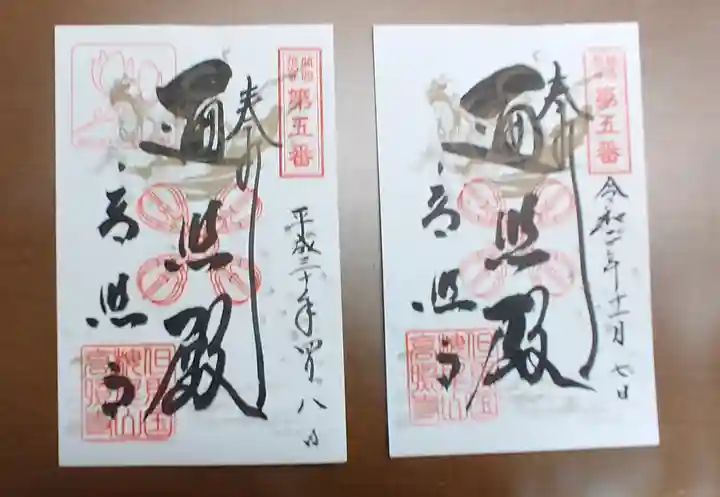 第五番
奉拝
遍照殿
高照寺
平成三十年四月八日
第五番
奉拝
遍照殿
高照寺
令和二年十一月七日